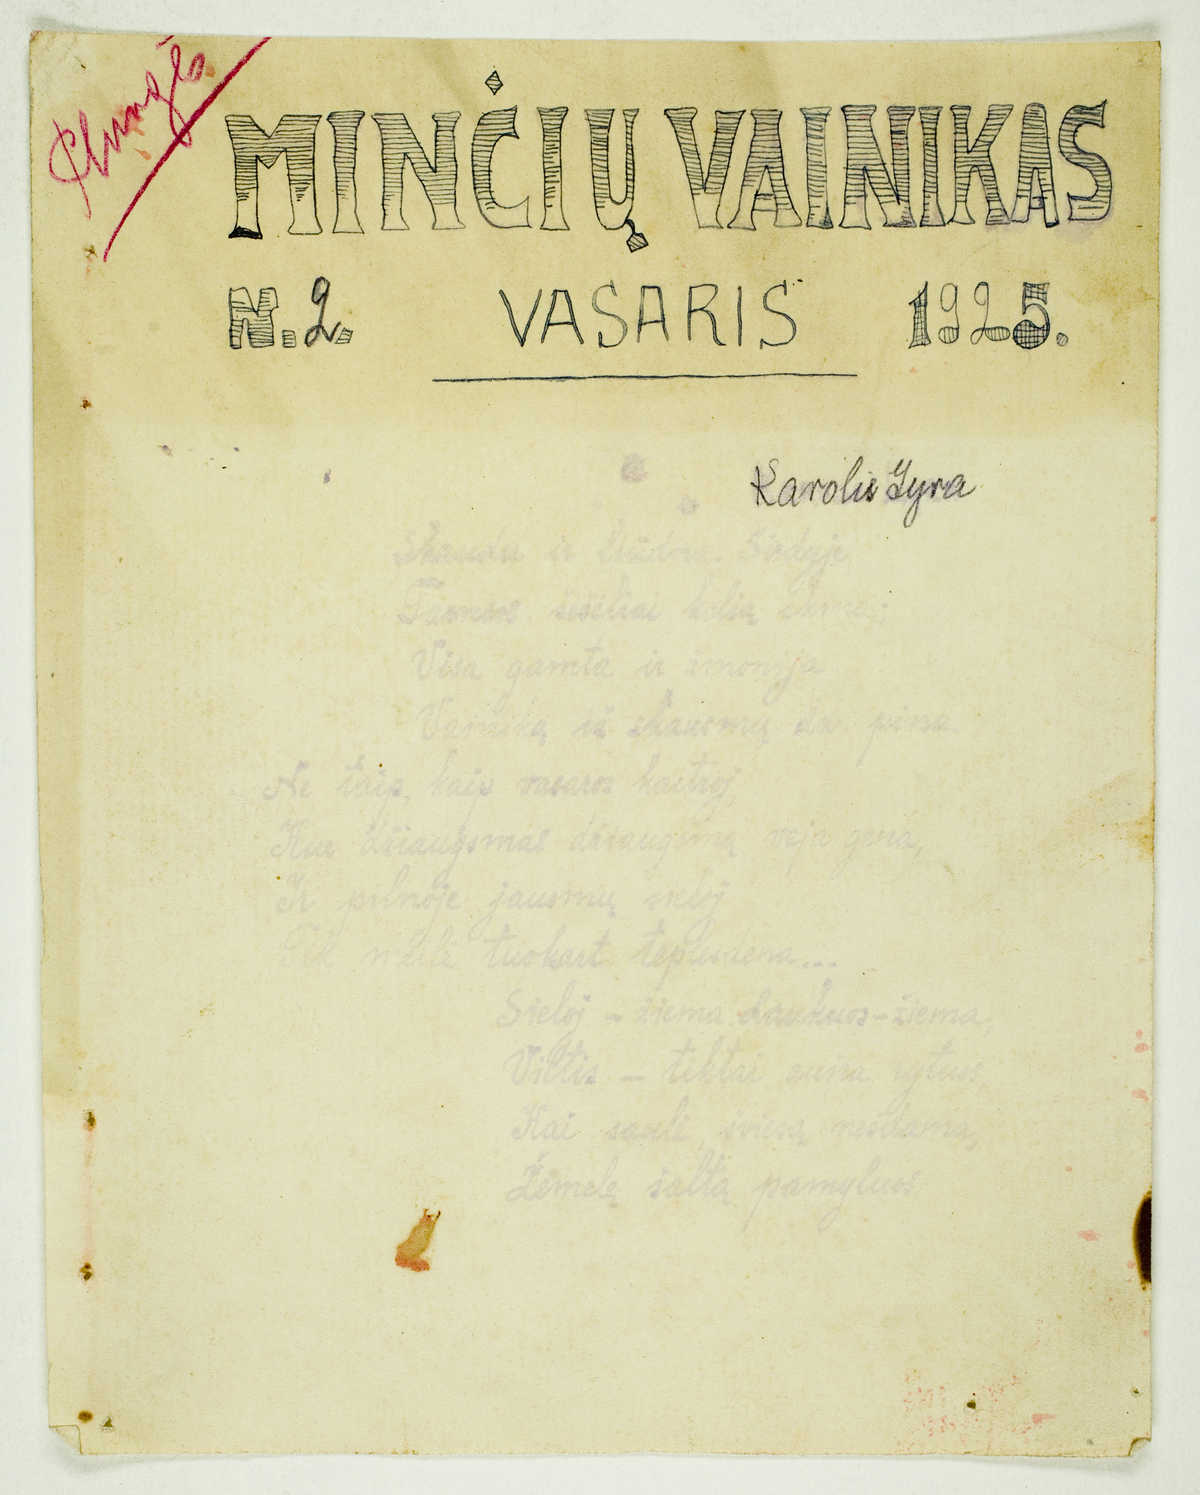 Plungės
MINČIŲ VAINIKAS
N. 2. VASARIS 1925.
Karolis Gyra
Skaudu ir liūdna. Širdyje
Tamsus šešėliai kelią
Visa gamta ir žmonija
Vainiką iš skausmų pina
Ne taip, kaip vasaros kaitroj,
Kur džiaugsmas džiaugsmą veja
Ir pilnoje jausmų sieloj
Tik meilė tuokart
Sieloj – žiema laukuos – žiema,
Viltis – tiktai rytuos,
Kai saulė šviesą nešdama,
Žemelę šaltą pamyluos